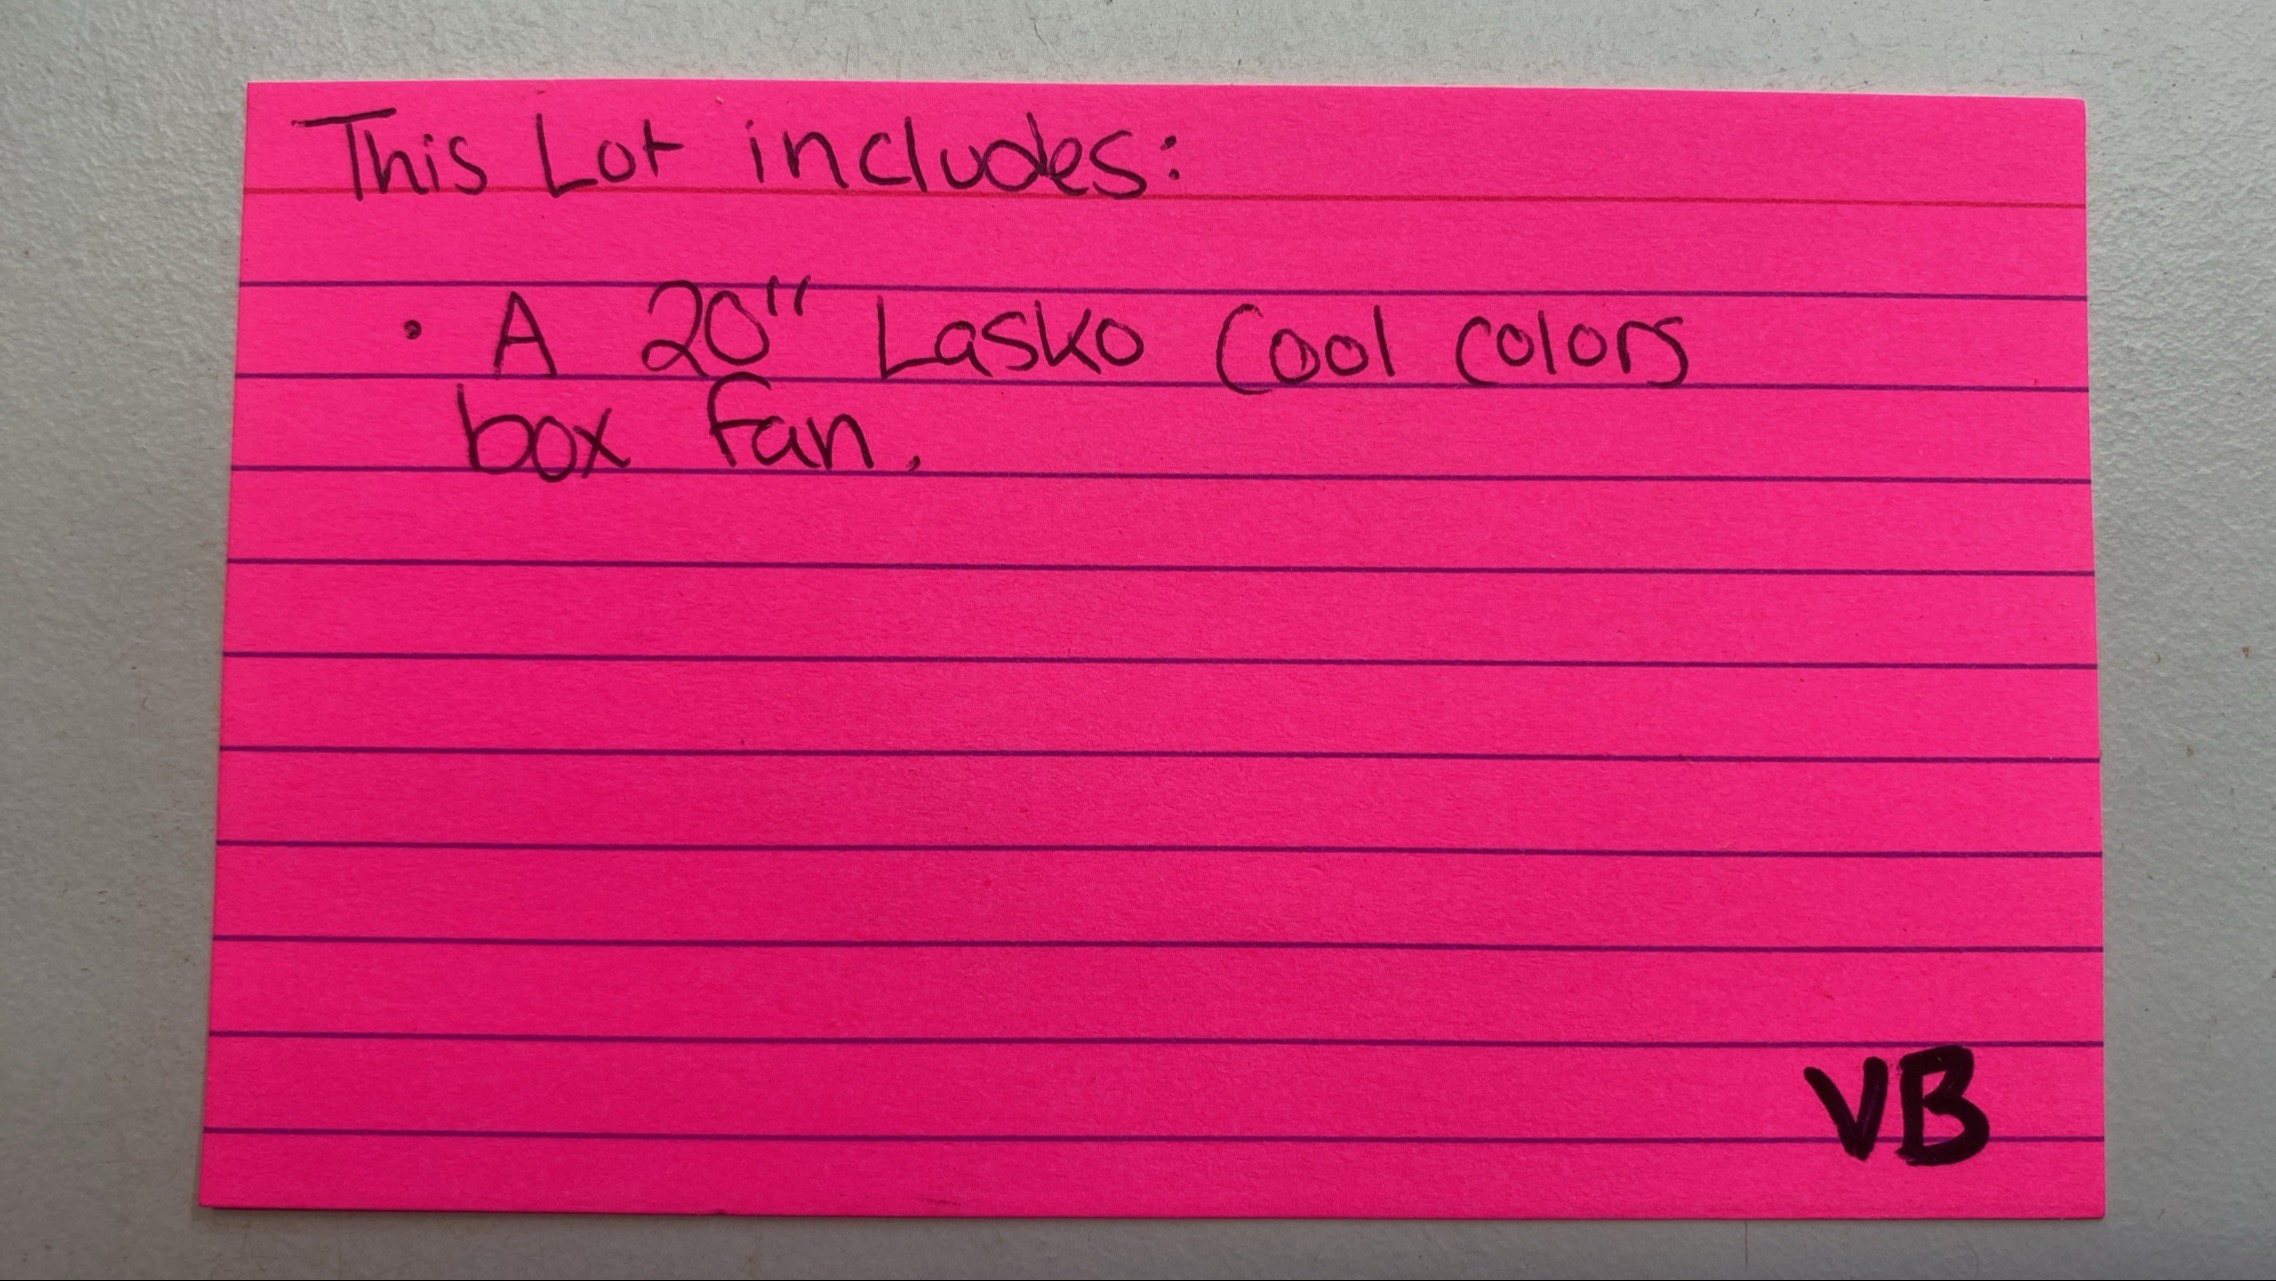 This Lot includes:
• A 20" Lasko Cool colors
box fan.
VB